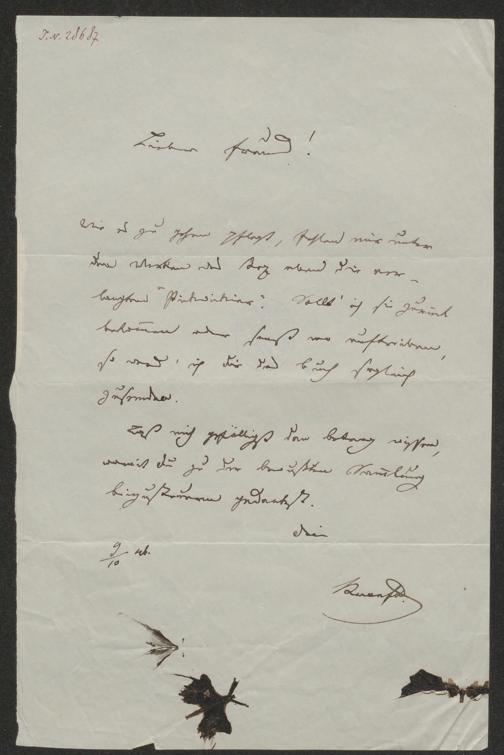 I.N. 28687
Lieber Freund!
Wie es zu gehen pflegt, fehlen mir unter
den Werken des Boz eben die ver-
langten "Pickwickier". Sollt' ich sie zurück
bekommen oder sonst wo auftreiben,
so werd' ich dir das Buch sogleich
zusenden.
Laß mich gefälligst den Betrag wissen,
womit du zu der bewußten Sammlung
beizusteuern gedenkst.
Dein
9/10 46.